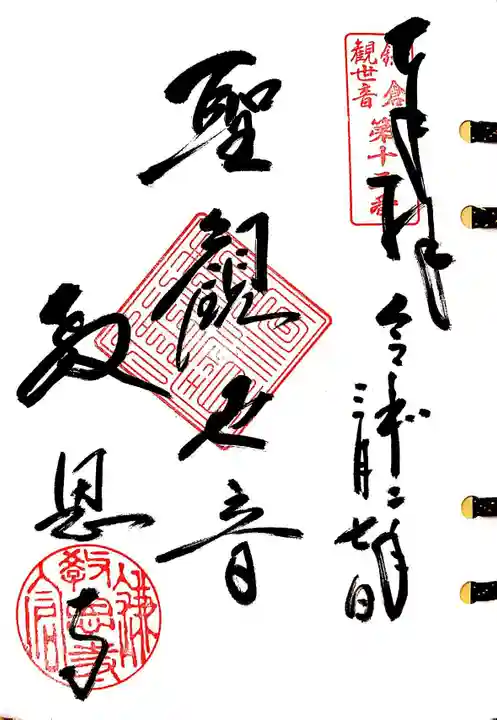 奉拝
鎌倉
観世音
第十二番
令和二年
三月七日
聖觀世音
教恩寺
鎌倉
教恩寺